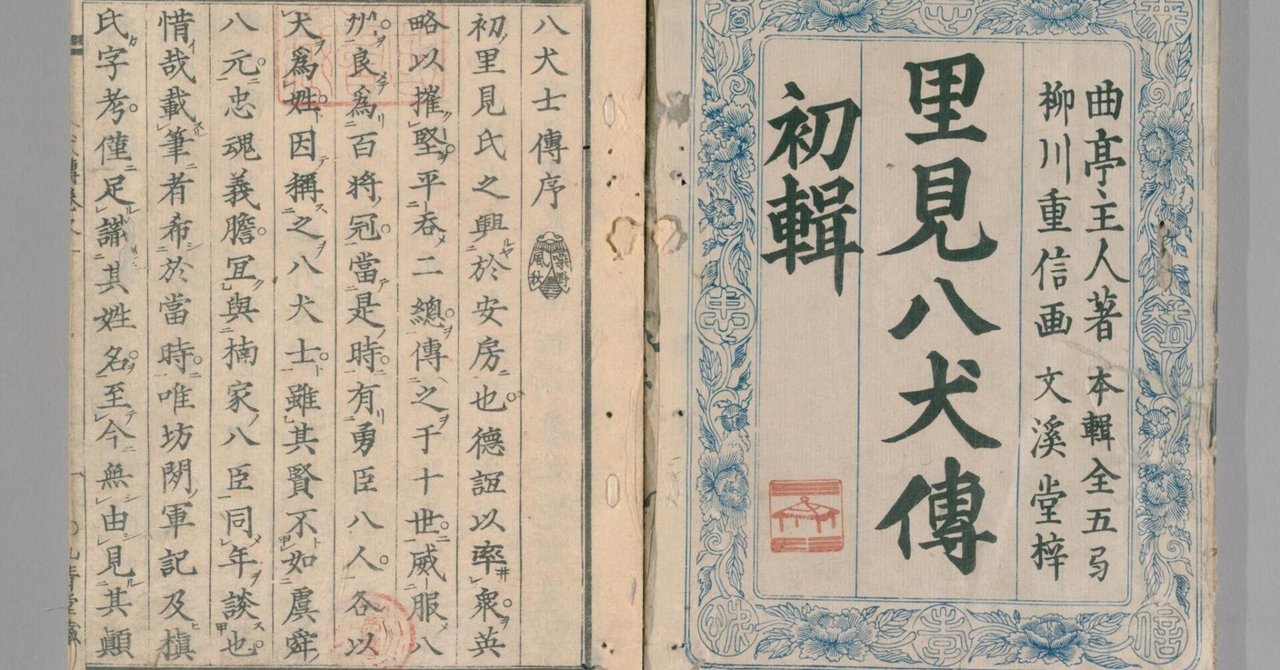 曲亭主人著 本輯全五号
柳川重信画 文溪堂梓
里見八犬傳
初輯
八犬士傳序
初里見氏之興於安房也德誼以率衆英
略以摧堅平呑二總傳之于十世威服八
州良爲百將冠當是時有勇臣八人各以
犬爲姓因稱之八犬士雖其賢不如虞舜
八元忠魂義膽宜與楠家八臣同年談也
惜哉載筆者希於當時唯坊間軍記及槙
氏字考僅足識其姓名至今無由見其顚